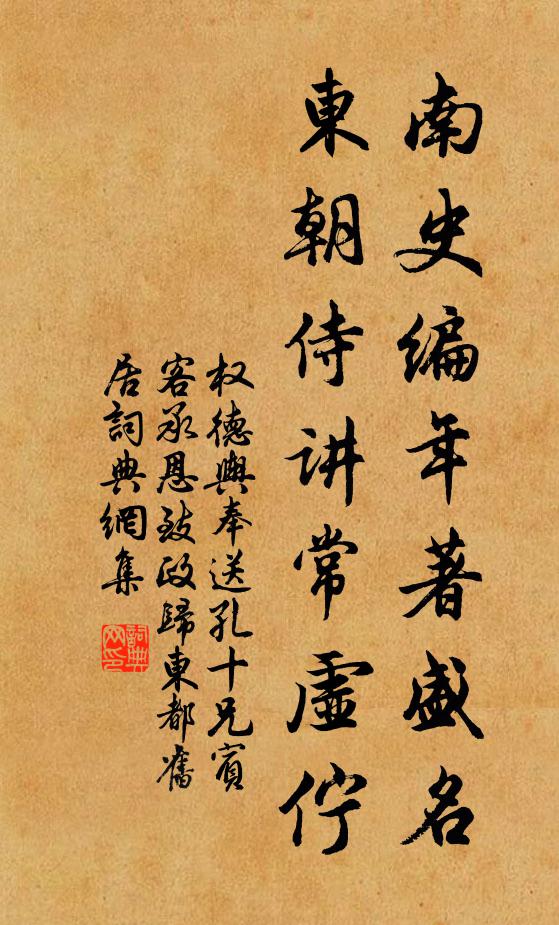 南史编年著盛名
東朝侍讲常虚佇
权德輿奉送孔十兄賓
客承恩致政歸東都舊
居詞典網集
詞典网印